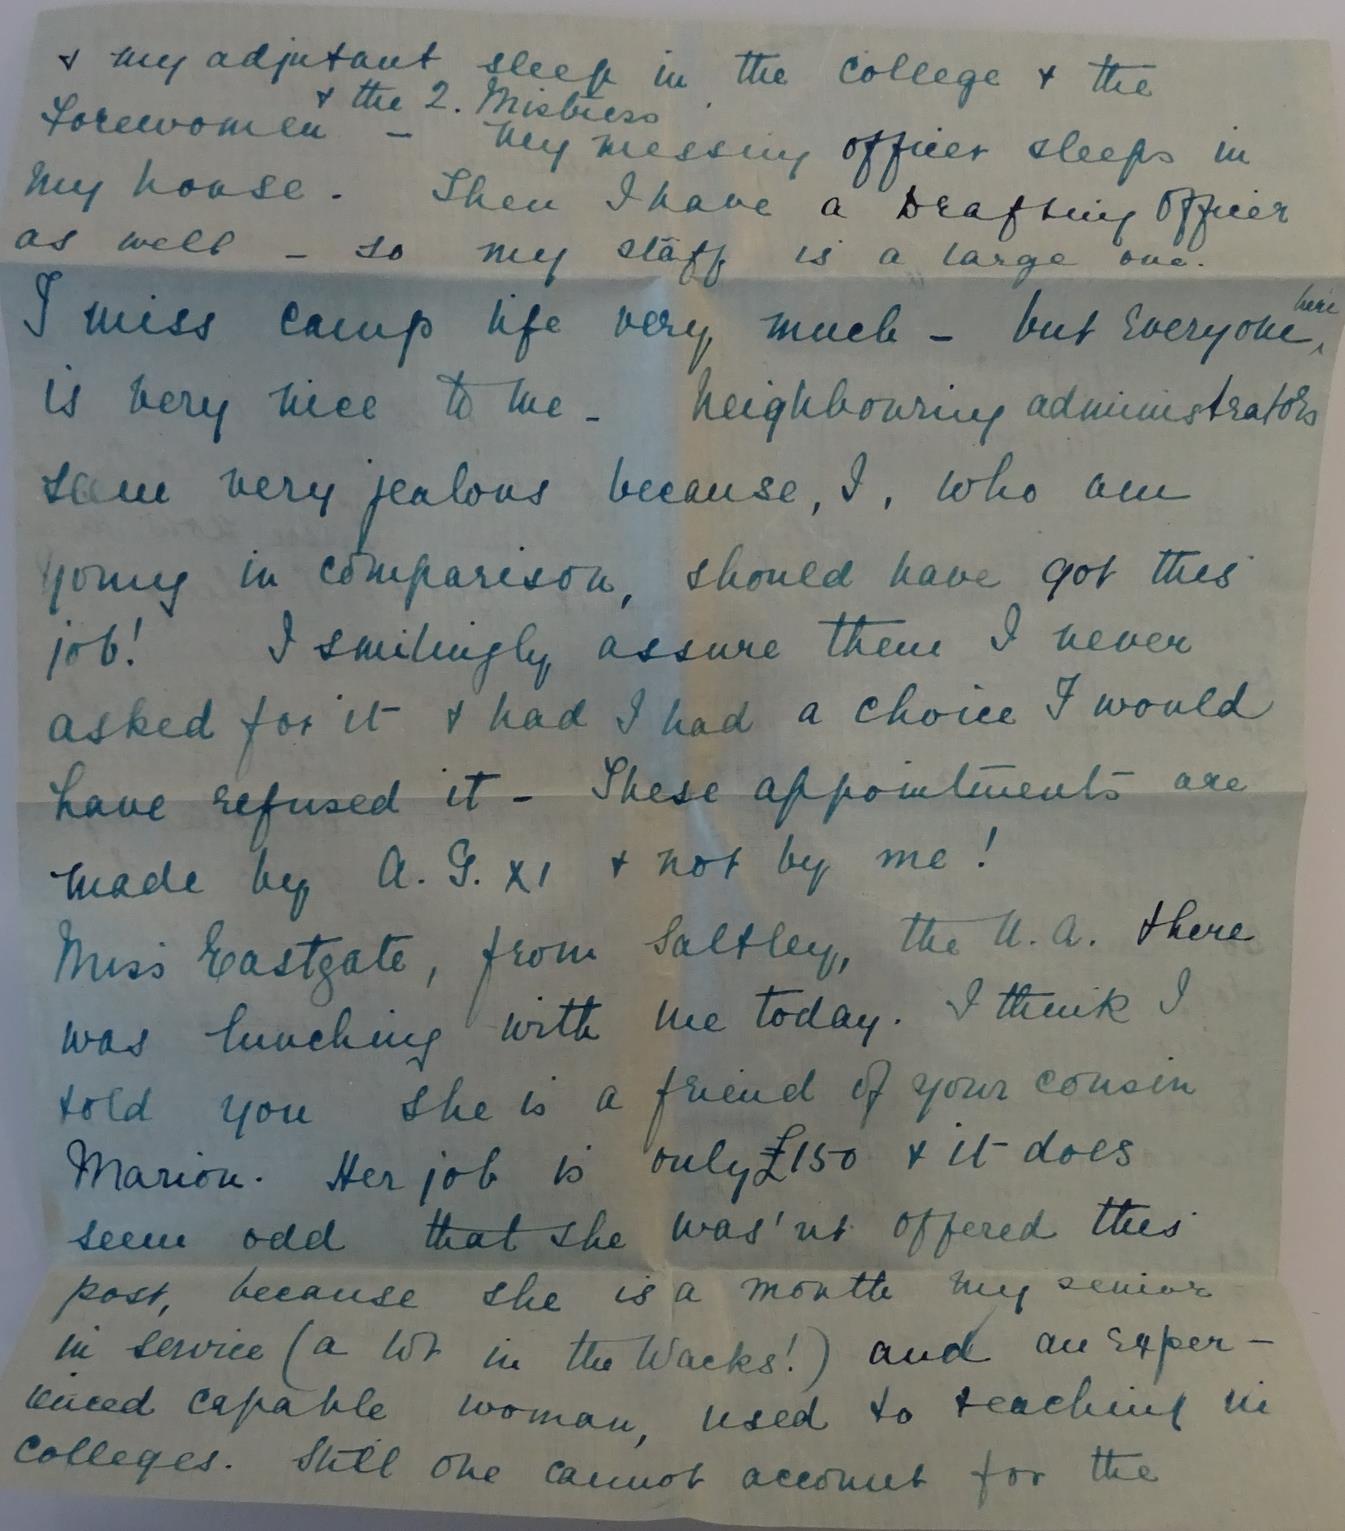 & my adjutant sleep in the college & the
& the Q. Mistress
Forewomen - My messing officer sleeps in
my house. Then I have a Drafting Officer
as well - so my staff is a large one.
I miss camp life very much - but everyone here
is very nice to me - neighbouring administrators
seem very jealous because, I, who am
young in comparison, should have got this
job! I smilingly assure them I never
asked for it & had I had a choice I would
have refused it - These appointments are
made by A. G. XI & not by me!
Miss Eastgate, from Saltley, the U. A. there
was lunching with me today. I think I
told you she is a friend of your cousin
Marion. Her job is only £150 & it does
seem odd that she was'nt offered this
post, because she is a month my senior
in service (a lot in the Wacks!) and an exper-
ienced capable woman, used to teaching in
colleges. Still one cannot account for the